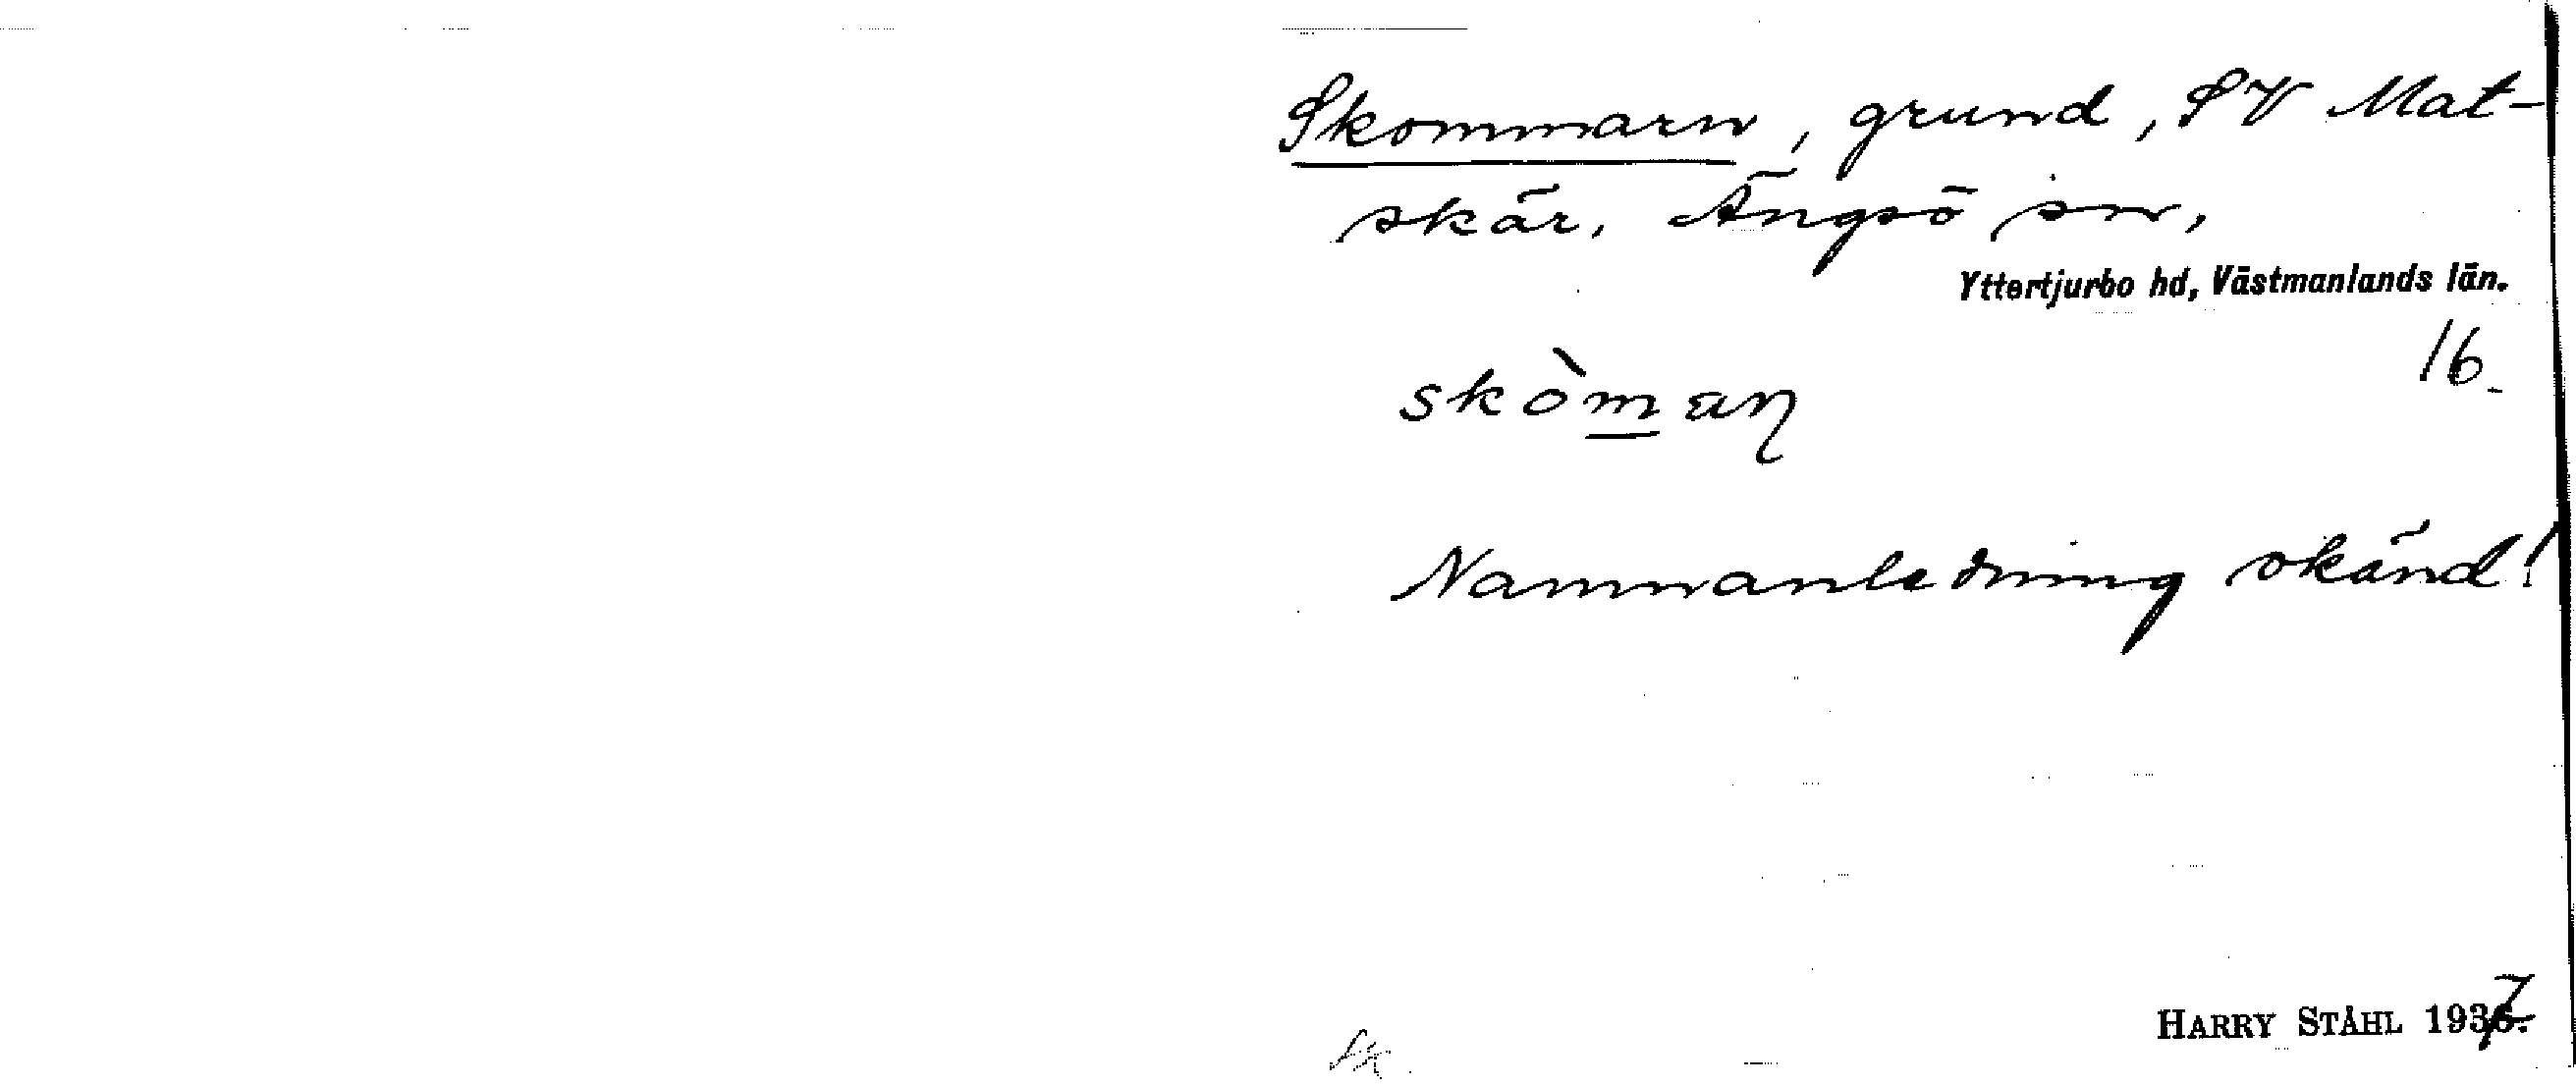 Skommarn, grund, SV Mat-
skär, Ängsö sn,
Yttertjurbo hd, Västmanlands län.
16.
skòman
Namnanledning okänd!
HARRY STÅHL 1937.